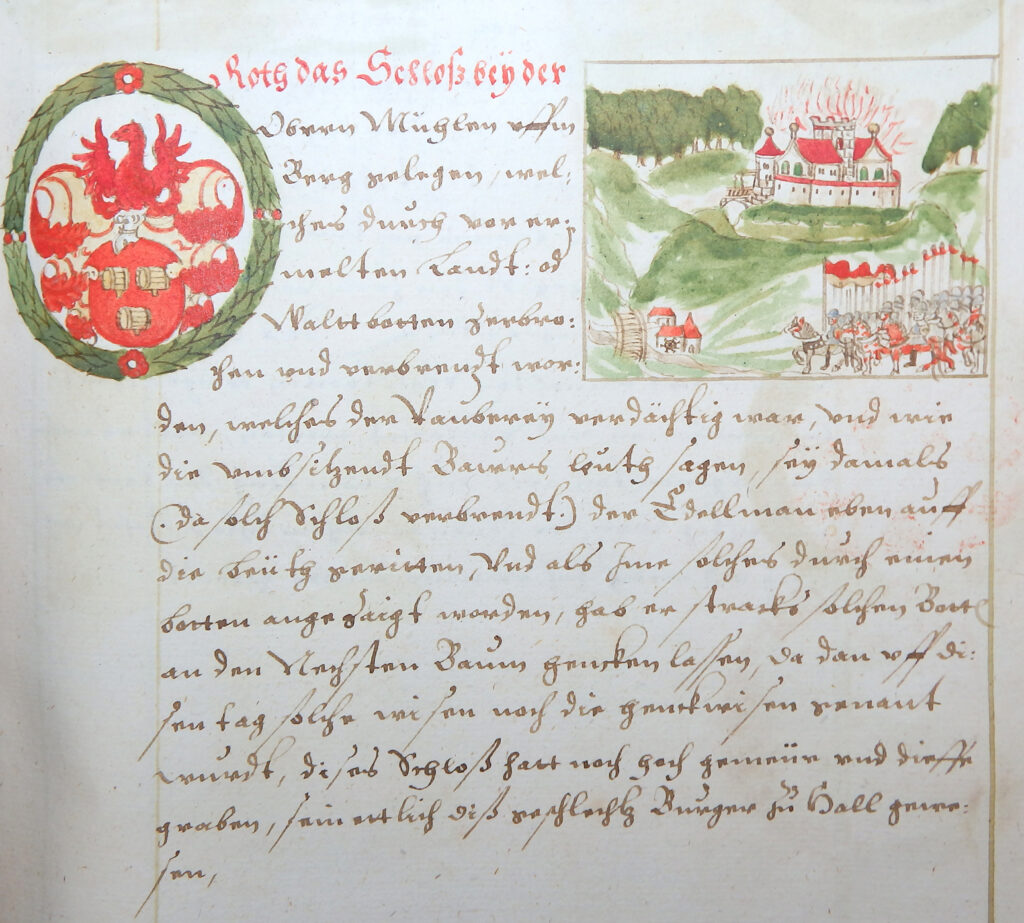 Roth das Schloß beÿ der
Obern Mühlen vffm
Berg gelegen, wel:
ches durch vor er:
melten Landt: od
Waltt botten zerbro:
chen vnd verbrendt wor:
den, welches der Raubereÿ verdächtig war, vnd wie
die vmbsitzendt Baurs leuth sagen, seÿ damals
(: da solch Schloß verbrendt :) der Edellman eben auff
die beüth geritten, Vnd als Jme solches durch einen
botten angezaigt worden, hab er stracks solchen Bott
an den Nechsten Baum hencken lassen, da dan vff di:
sen tag solche wisen noch die henckwisen genant
wurdt, dises Schloß hatt noch hoch gemeür vnd dieffe
graben, sein ettlich diß geschlechtz Burger zu Hall gewe:
sen,